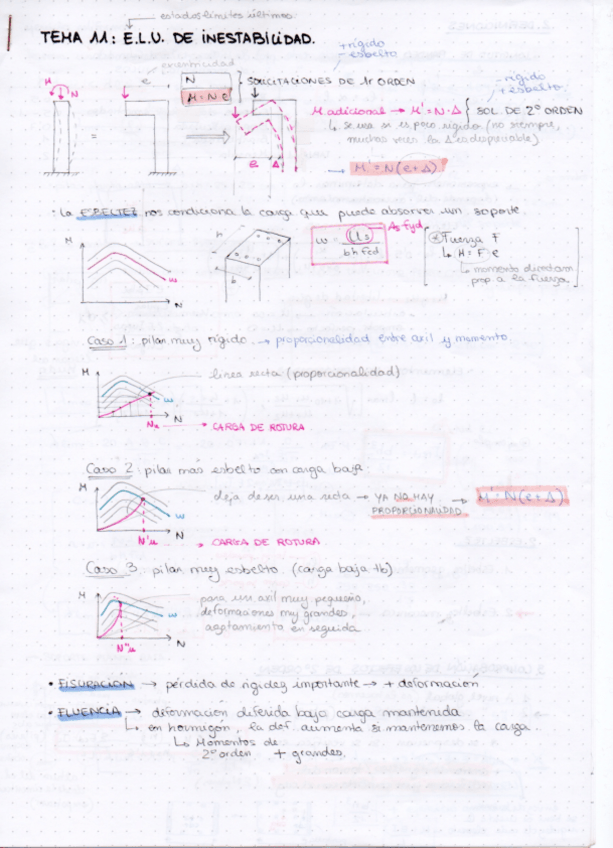 estados límites últimos
TEMA 11: E.L.U. DE INESTABILIDAD.
+ rígido
- esbelto
excentricidad
M
N
e
N
M = N·e
SOLICITACIONES DE 1r ORDEN
- rígido
+ esbelto
M adicional → M' = N·Δ { SOL. DE 2º ORDEN
↳ se usa si es poco rígido (no siempre,
muchas veces la Δ es despreciable)
=
e Δ
→ M' = N(e+Δ)
· La ESBELTEZ nos condiciona la carga que puede absorver un soporte.
M
ω
N
h
b
As fyd
b h fcd
Fuerza F
↳ M = F·e
↳ momento directam
prop a la fuerza.
Caso 1: pilar muy rígido. → proporcionalidad entre axil y momento
M
línea recta (proporcionalidad)
ω
N
Nu → CARGA DE ROTURA
Caso 2: pilar más esbelto con carga baja.
M
deja de ser una recta → YA NO HAY PROPORCIONALIDAD → M' = N(e+Δ)
ω
N
N'u → CARGA DE ROTURA
Caso 3: pilar muy esbelto. (carga baja tb)
M
para un axil muy pequeño,
deformaciones muy grandes,
agotamiento en seguida
ω
N
N''u
• FISURACIÓN → pérdida de rigidez importante → + deformación
• FLUENCIA → diformación diferida bajo carga mantenida
↳ en hormigón, la def. aumenta si mantenemos la carga.
↳ Momentos de
2º orden + grandes.